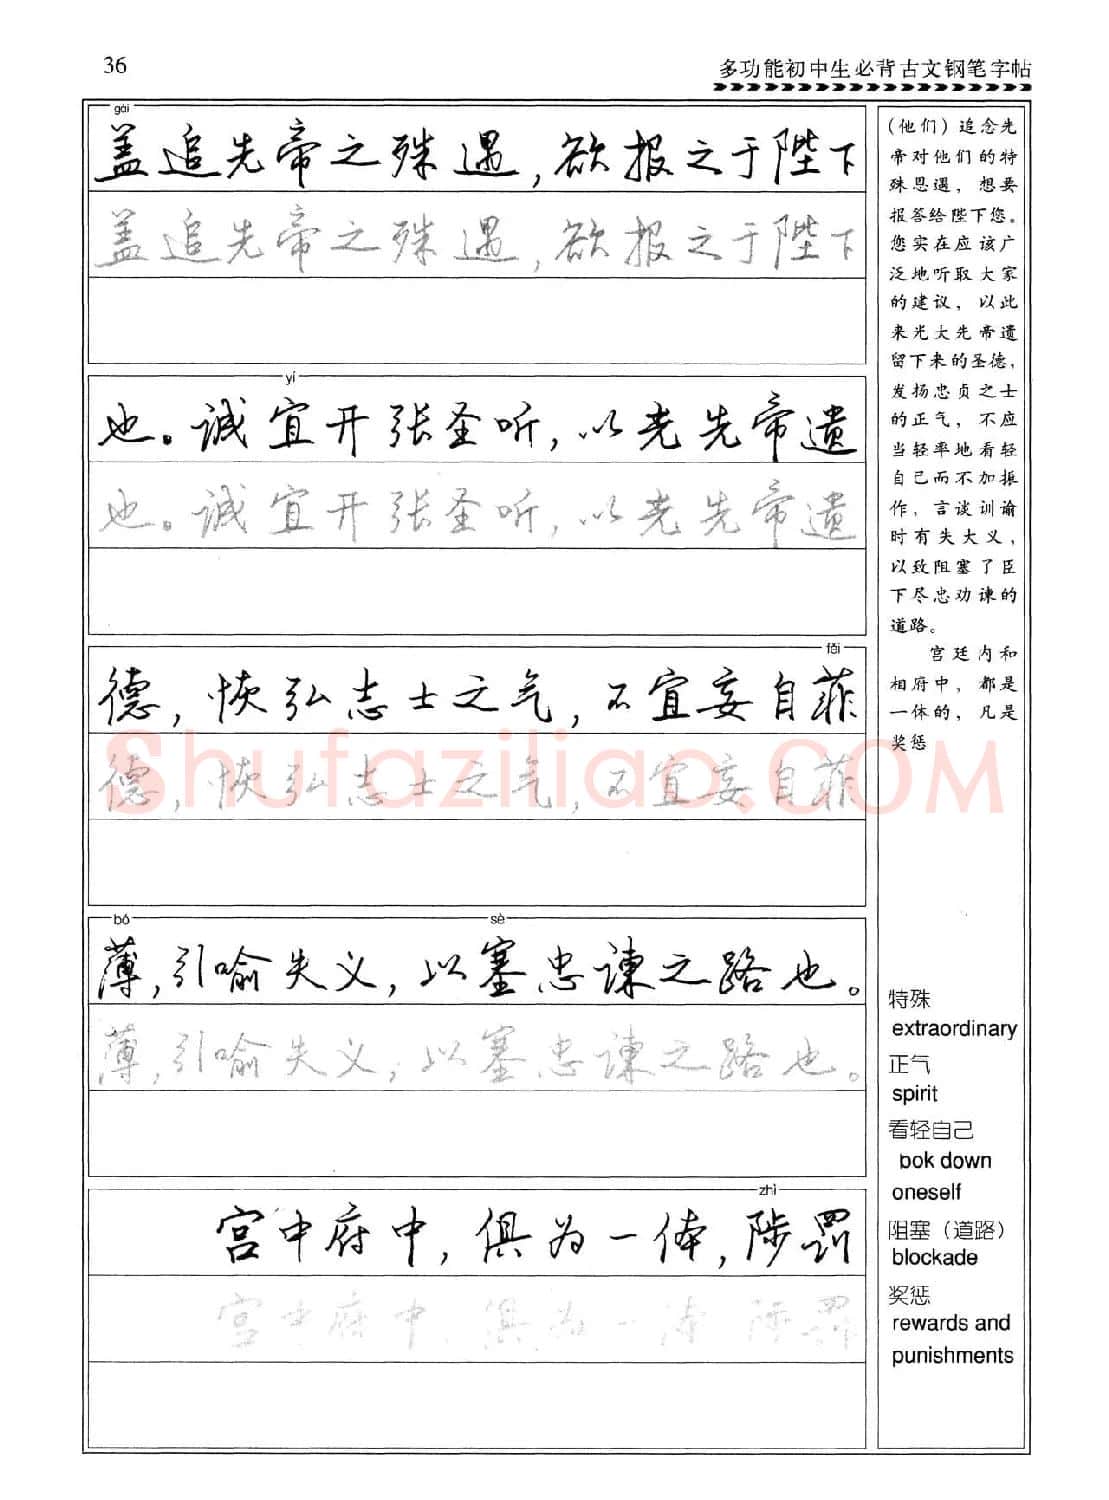 36
多功能初中生必背古文钢笔字帖
gài
盖追先帝之殊遇,欲报之于陛下
盖追先帝之殊遇,欲报之于陛下
yí
也。诚宜开张圣听,以光先帝遗
也。诚宜开张圣听,以光先帝遗
fěi
德,恢弘志士之气,不宜妄自菲
德,恢弘志士之气,不宜妄自菲
bó sè
薄,引喻失义,以塞忠谏之路也。
薄,引喻失义,以塞忠谏之路也。
zhì
宫中府中,俱为一体,陟罚
宫中府中,俱为一体,陟罚
(他们)追念先
帝对他们的特
殊恩遇,想要
报答给陛下您。
您实在应该广
泛地听取大家
的建议,以此
来光大先帝遗
留下来的圣德,
发扬忠贞之士
的正气,不应
当轻率地看轻
自己而不加振
作,言谈训谕
时有失大义,
以致阻塞了臣
下尽忠劝谏的
道路。
宫廷内和
相府中,都是
一体的,凡是
奖惩
特殊
extraordinary
正气
spirit
看轻自己
bok down
oneself
阻塞(道路)
blockade
奖惩
rewards and
punishments
Shufaziliao.COM